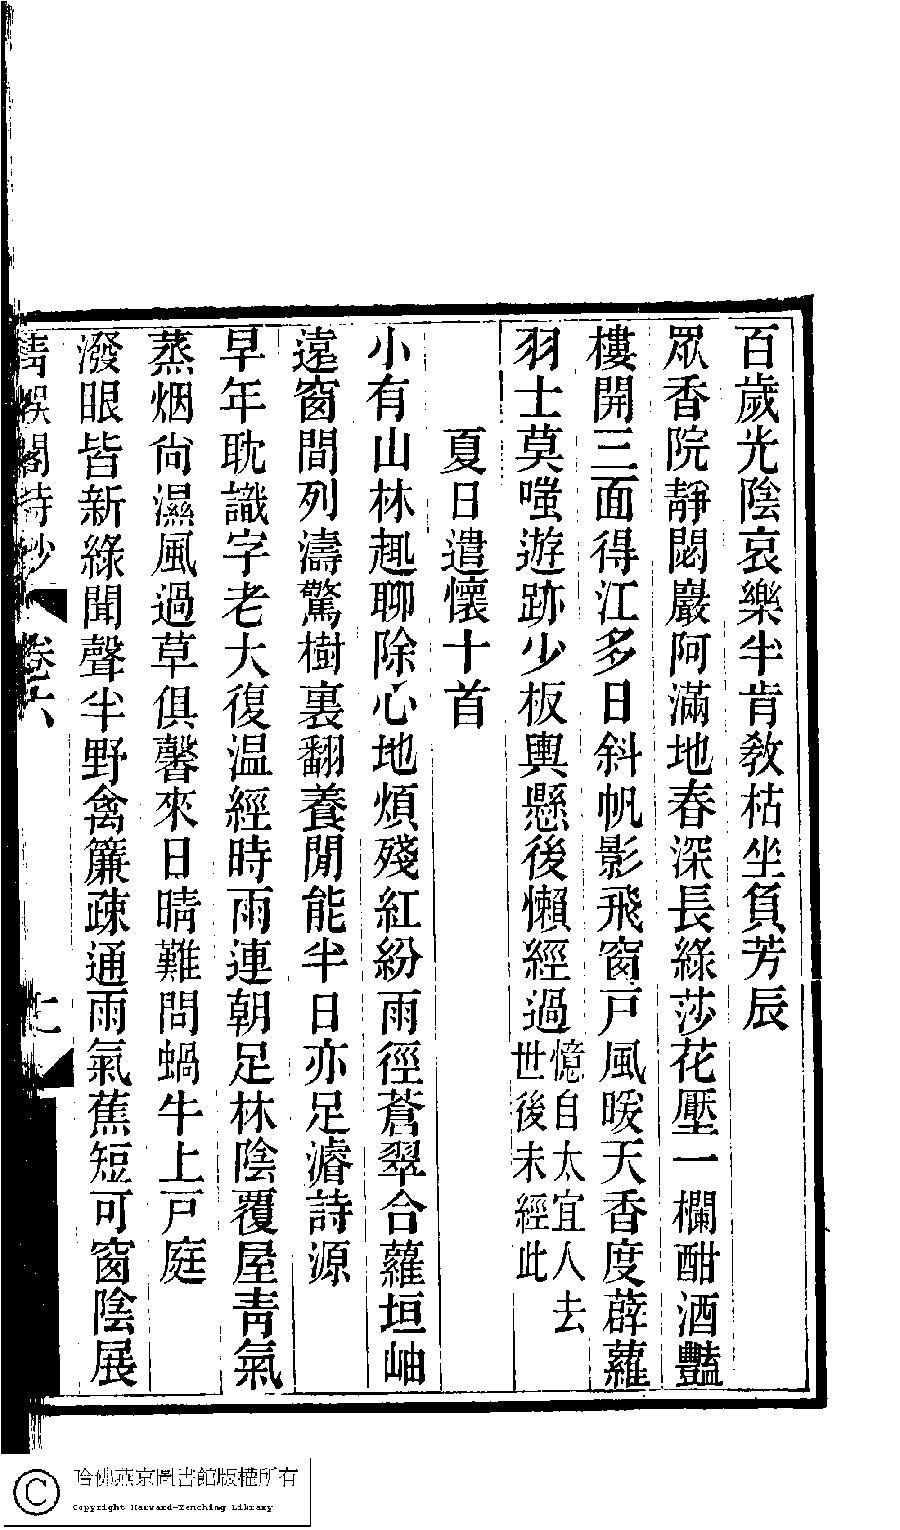 百歲光陰哀樂半肯敎枯坐負芳辰
眾香院靜閟巖阿滿地春深長綠莎花壓一欄酣酒豔
樓開三面得江多日斜帆影飛窗戸風暖天香度薜蘿
羽士莫嗤遊跡少板輿懸後懶經過憶自太宜人去世後未經此
夏日遣懷十首
小有山林趣聊除心地煩殘紅紛雨徑蒼翠合蘿垣岫
遠窗間列濤驚樹裏翻養閒能半日亦足濬詩源
早年耽識字老大復温經時雨連朝足林陰覆屋靑氣
蒸烟尙濕風過草俱馨來日晴難問蝸牛上戸庭
潑眼皆新綠聞聲半野禽簾疎通雨氣蕉短可窗陰展
靑 閣詩鈔 卷六 七
哈佛燕京圖書館版權所有
Copyright Harvard-Yenching Library